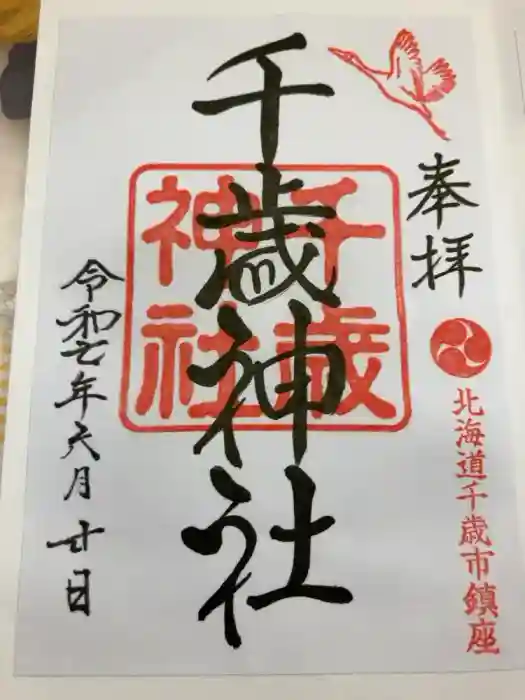 奉拝
北海道千歳市鎮座
千歳神社
千歳
神社
令和七年六月廿日